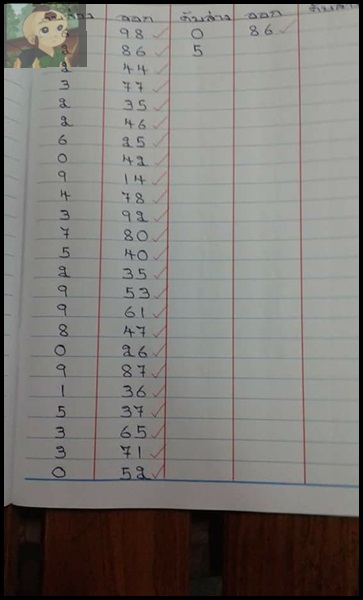 ออก ต้นล่าง ออก
98 0 86
3 86 5
2 44
3 77
2 35
2 46
6 25
0 42
9 14
4 78
3 92
7 80
5 40
2 35
9 53
9 61
8 47
0 26
9 87
1 36
5 37
3 65
3 71
0 52